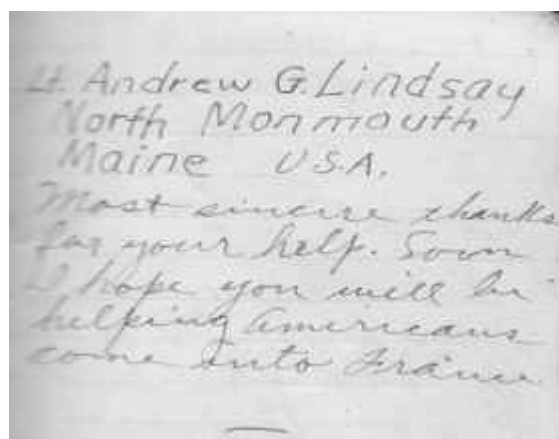 Lt. Andrew G. Lindsay
North Monmouth
Maine U.S.A.
Most sincere thanks
for your help. Soon
I hope you will be
helping Americans
come into France